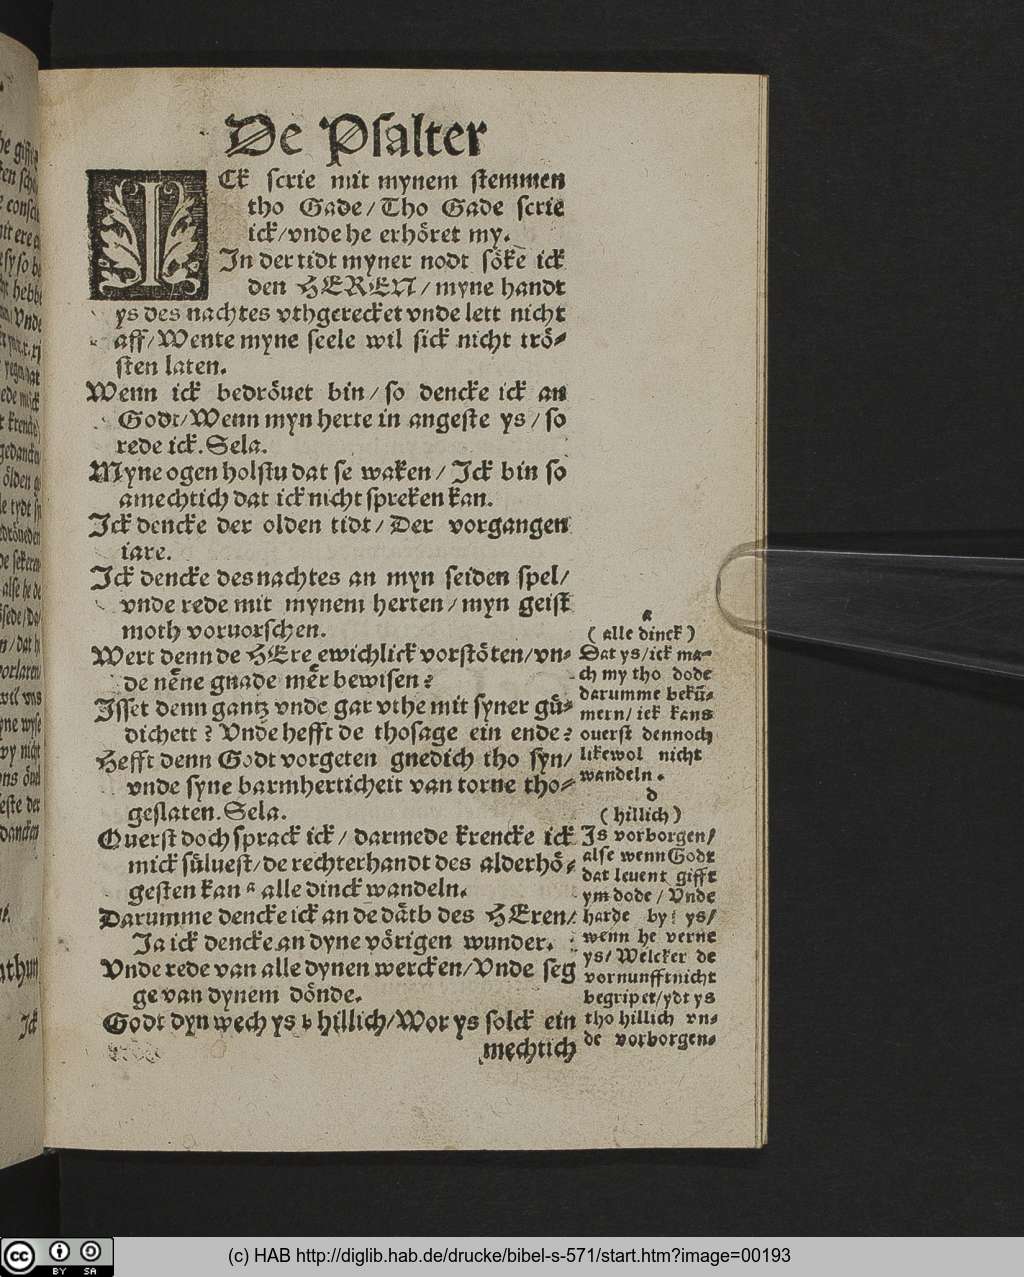 De Psalter
ICk scrie mit mynem stemmen
tho Gade/Tho Gade scrie
ick/vnde he erhöret my.
In der tidt myner nodt söke ick
den HEREN/myne handt
ys des nachtes vthgerecket vnde lett nicht
aff/Wente myne seele wil sick nicht trö-
sten laten.
Wenn ick bedröuet bin/so dencke ick an
Godt/Wenn myn herte in angeste ys/so
rede ick.Sela.
Myne ogen holstu dat se waken/Ick bin so
amechtich dat ick nicht spreken kan.
Ick dencke der olden tidt/Der vorgangen
iare.
Ick dencke des nachtes an myn seiden spel/
vnde rede mit mynem herten/myn geist
moth voruorschen.
Wert denn de HEre ewichlick vorstöten/vn-
de nēne gnade mēr bewisen?
Isset denn gantz vnde gar vthe mit syner gü-
dichett? Vnde hefft de thosage ein ende?
Hefft denn Godt vorgeten gnedich tho syn/
vnde syne barmherticheit van torne tho-
geslaten.Sela.
Ouerst doch sprack ick/darmede krencke ick
mick süluest/de rechterhandt des alderhö-
gesten kan a alle dinck wandeln.
Darumme dencke ick an de dätb des HEren/
Ja ick dencke an dyne vörigen wunder.
Vnde rede van alle dynen wercken/Vnde seg
ge van dynem dönde.
Godt dyn wech ys b hillich/Wor ys solck ein
mechtich
a
(alle dinck)
Dat ys/ick ma-
ch my tho dode
darumme bekü-
mern/ick kans
ouerst dennoch
likewol nicht
wandeln.
b
(hillich)
Is vorborgen/
alse wenn Godt
dat leuent gifft
ym dode/Vnde
harde by ys/
wenn he verne
ys/Welcker de
vornunfft nicht
begripet/ydt ys
tho hillich vn-
de vorborgen.
Ick
(c) HAB http://diglib.hab.de/drucke/bibel-s-571/start.htm?image=00193
cc BY SA